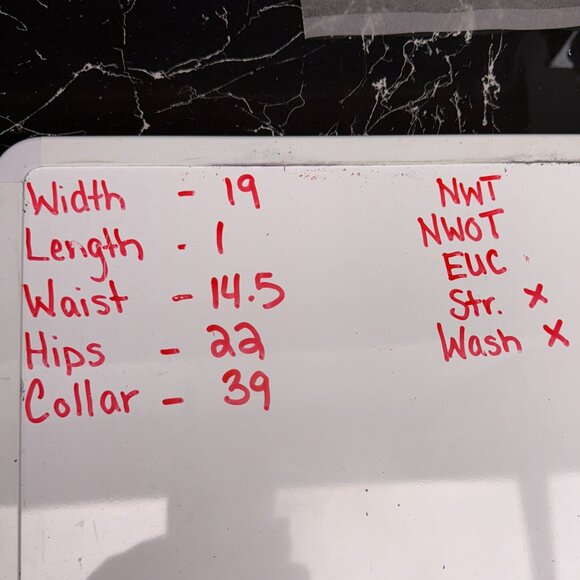 Width - 19
Length - 1
Waist - 14.5
Hips - 22
Collar - 39
NWT
NWOT
EUC
Str. x
Wash x